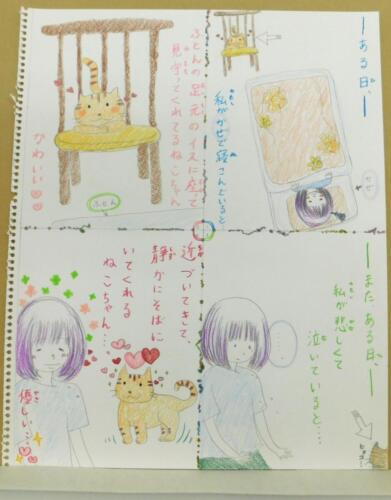 ―ある日、―
私がかぜで寝こんでいると
かわ
ふとんの足元のイスに座って
見守ってくれてるねこちゃん
かわいい
ふとん
―また、ある日、―
私が悲しくて
泣いていると…
ヒョコ
近づいてきて、
静かにそばに
いてくれる
ねこちゃん…
優しい…